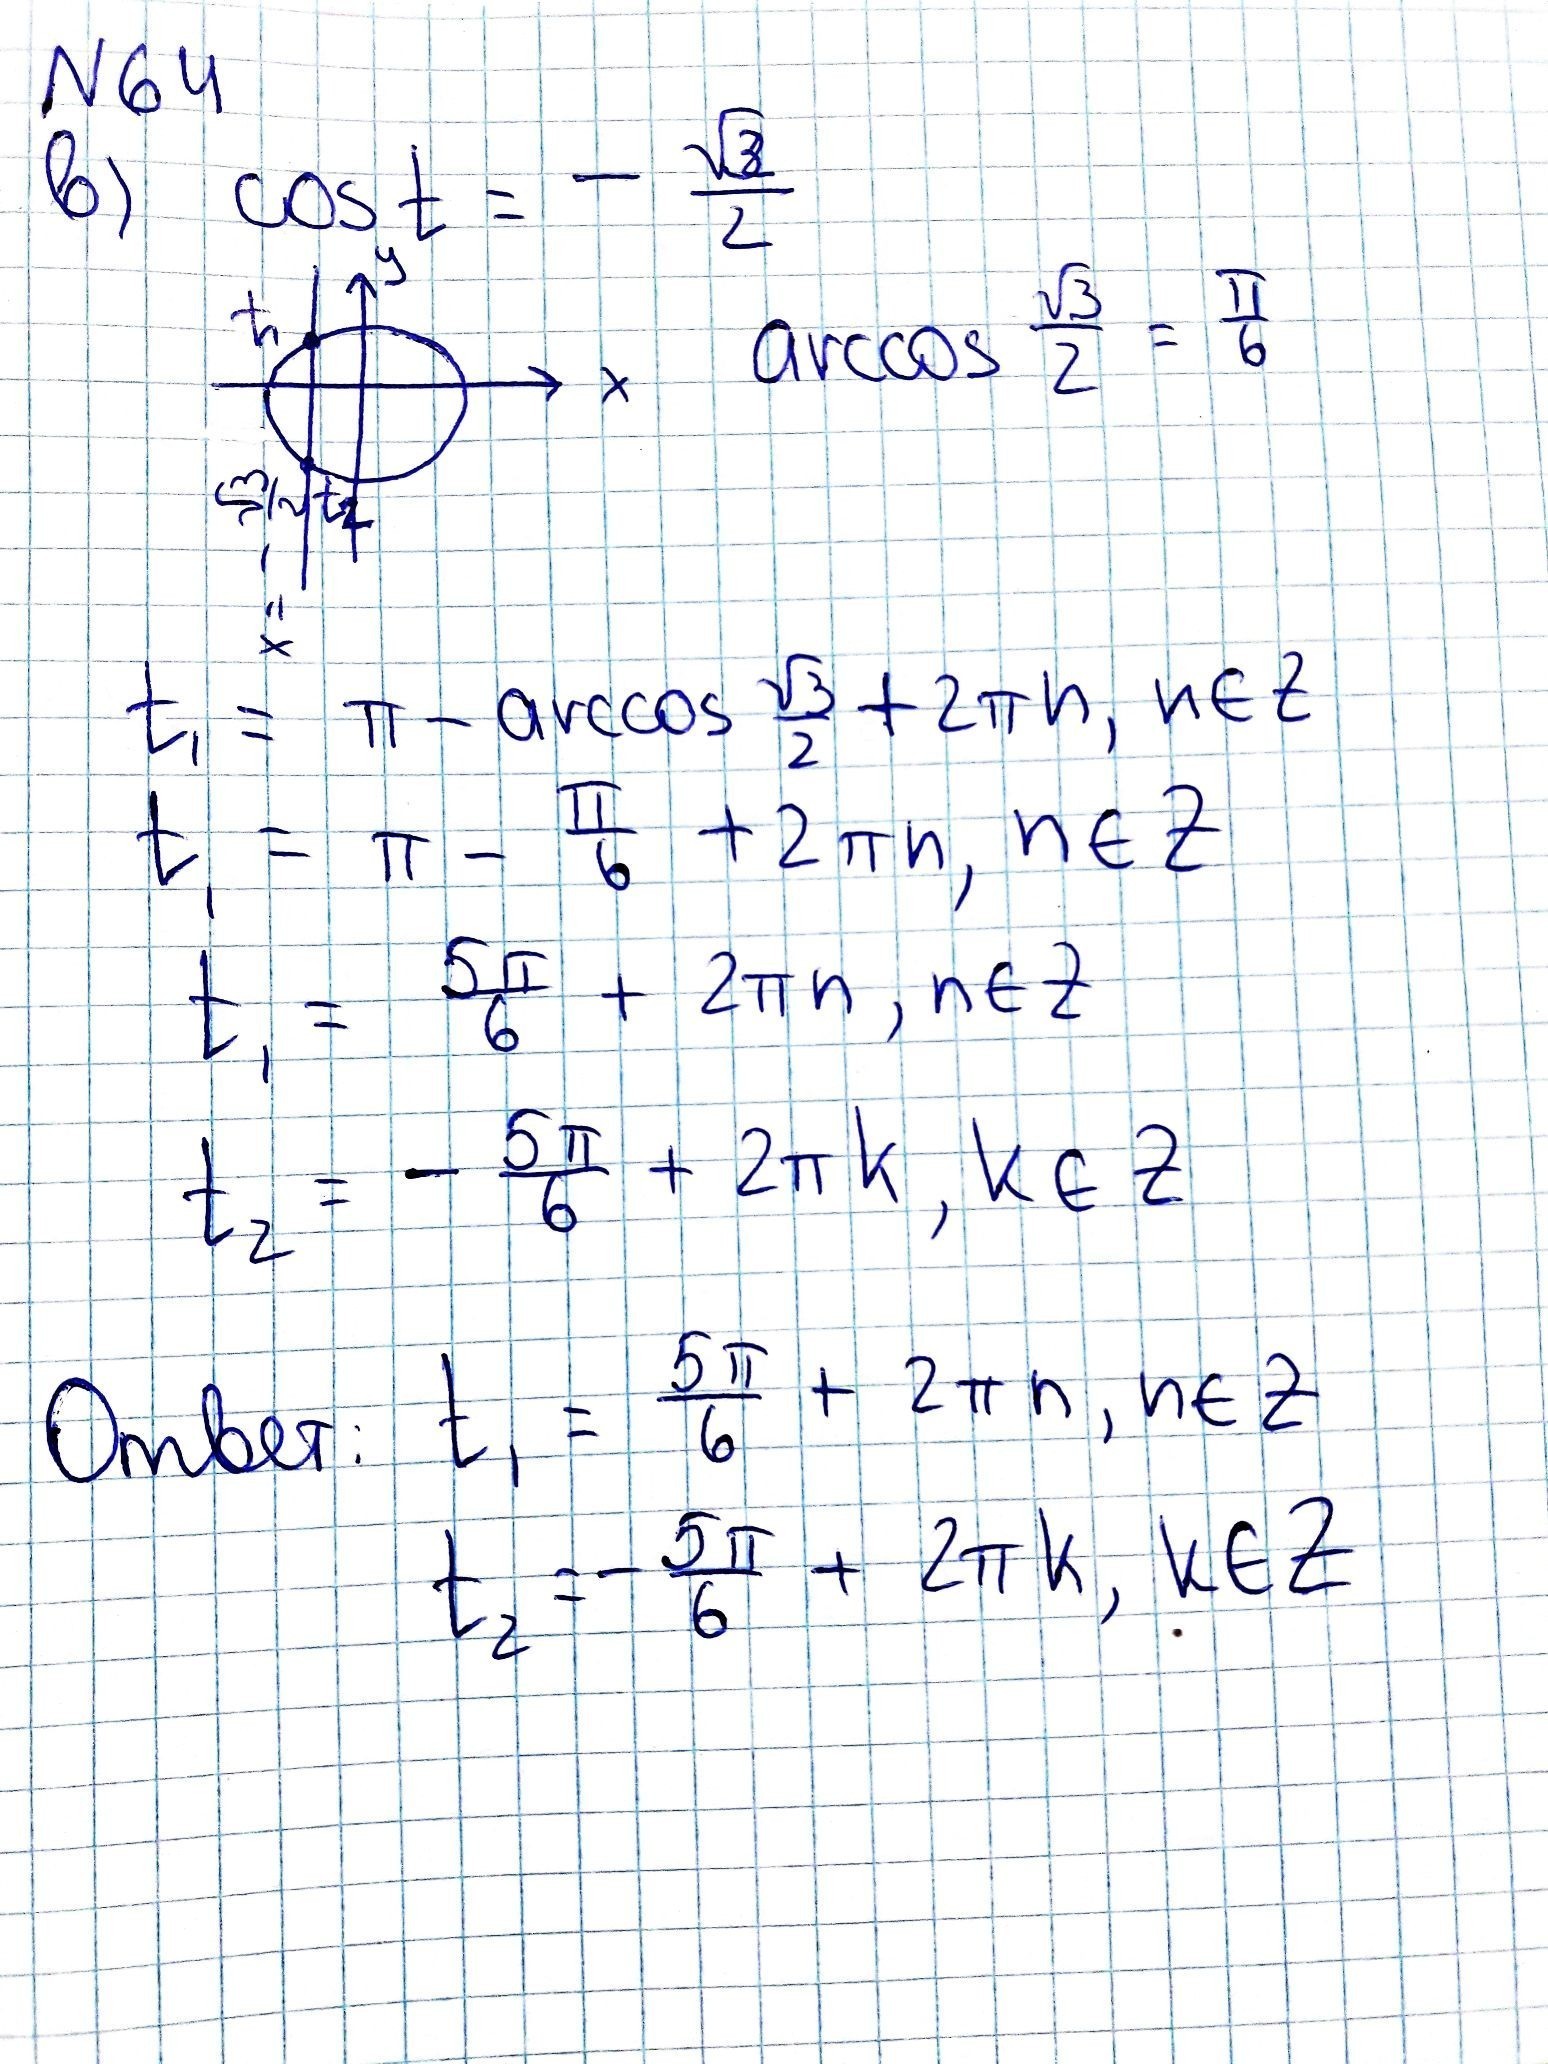 N64
в) cos t = - √3/2
y
t₁
x
arccos √3/2 = π/6
t₂
x = -√3/2
t₁ = π - arccos √3/2 + 2πn, n∈Z
t₁ = π - π/6 + 2πn, n∈Z
t₁ = 5π/6 + 2πn, n∈Z
t₂ = - 5π/6 + 2πk, k∈Z
Ответ: t₁ = 5π/6 + 2πn, n∈Z
t₂ = - 5π/6 + 2πk, k∈Z